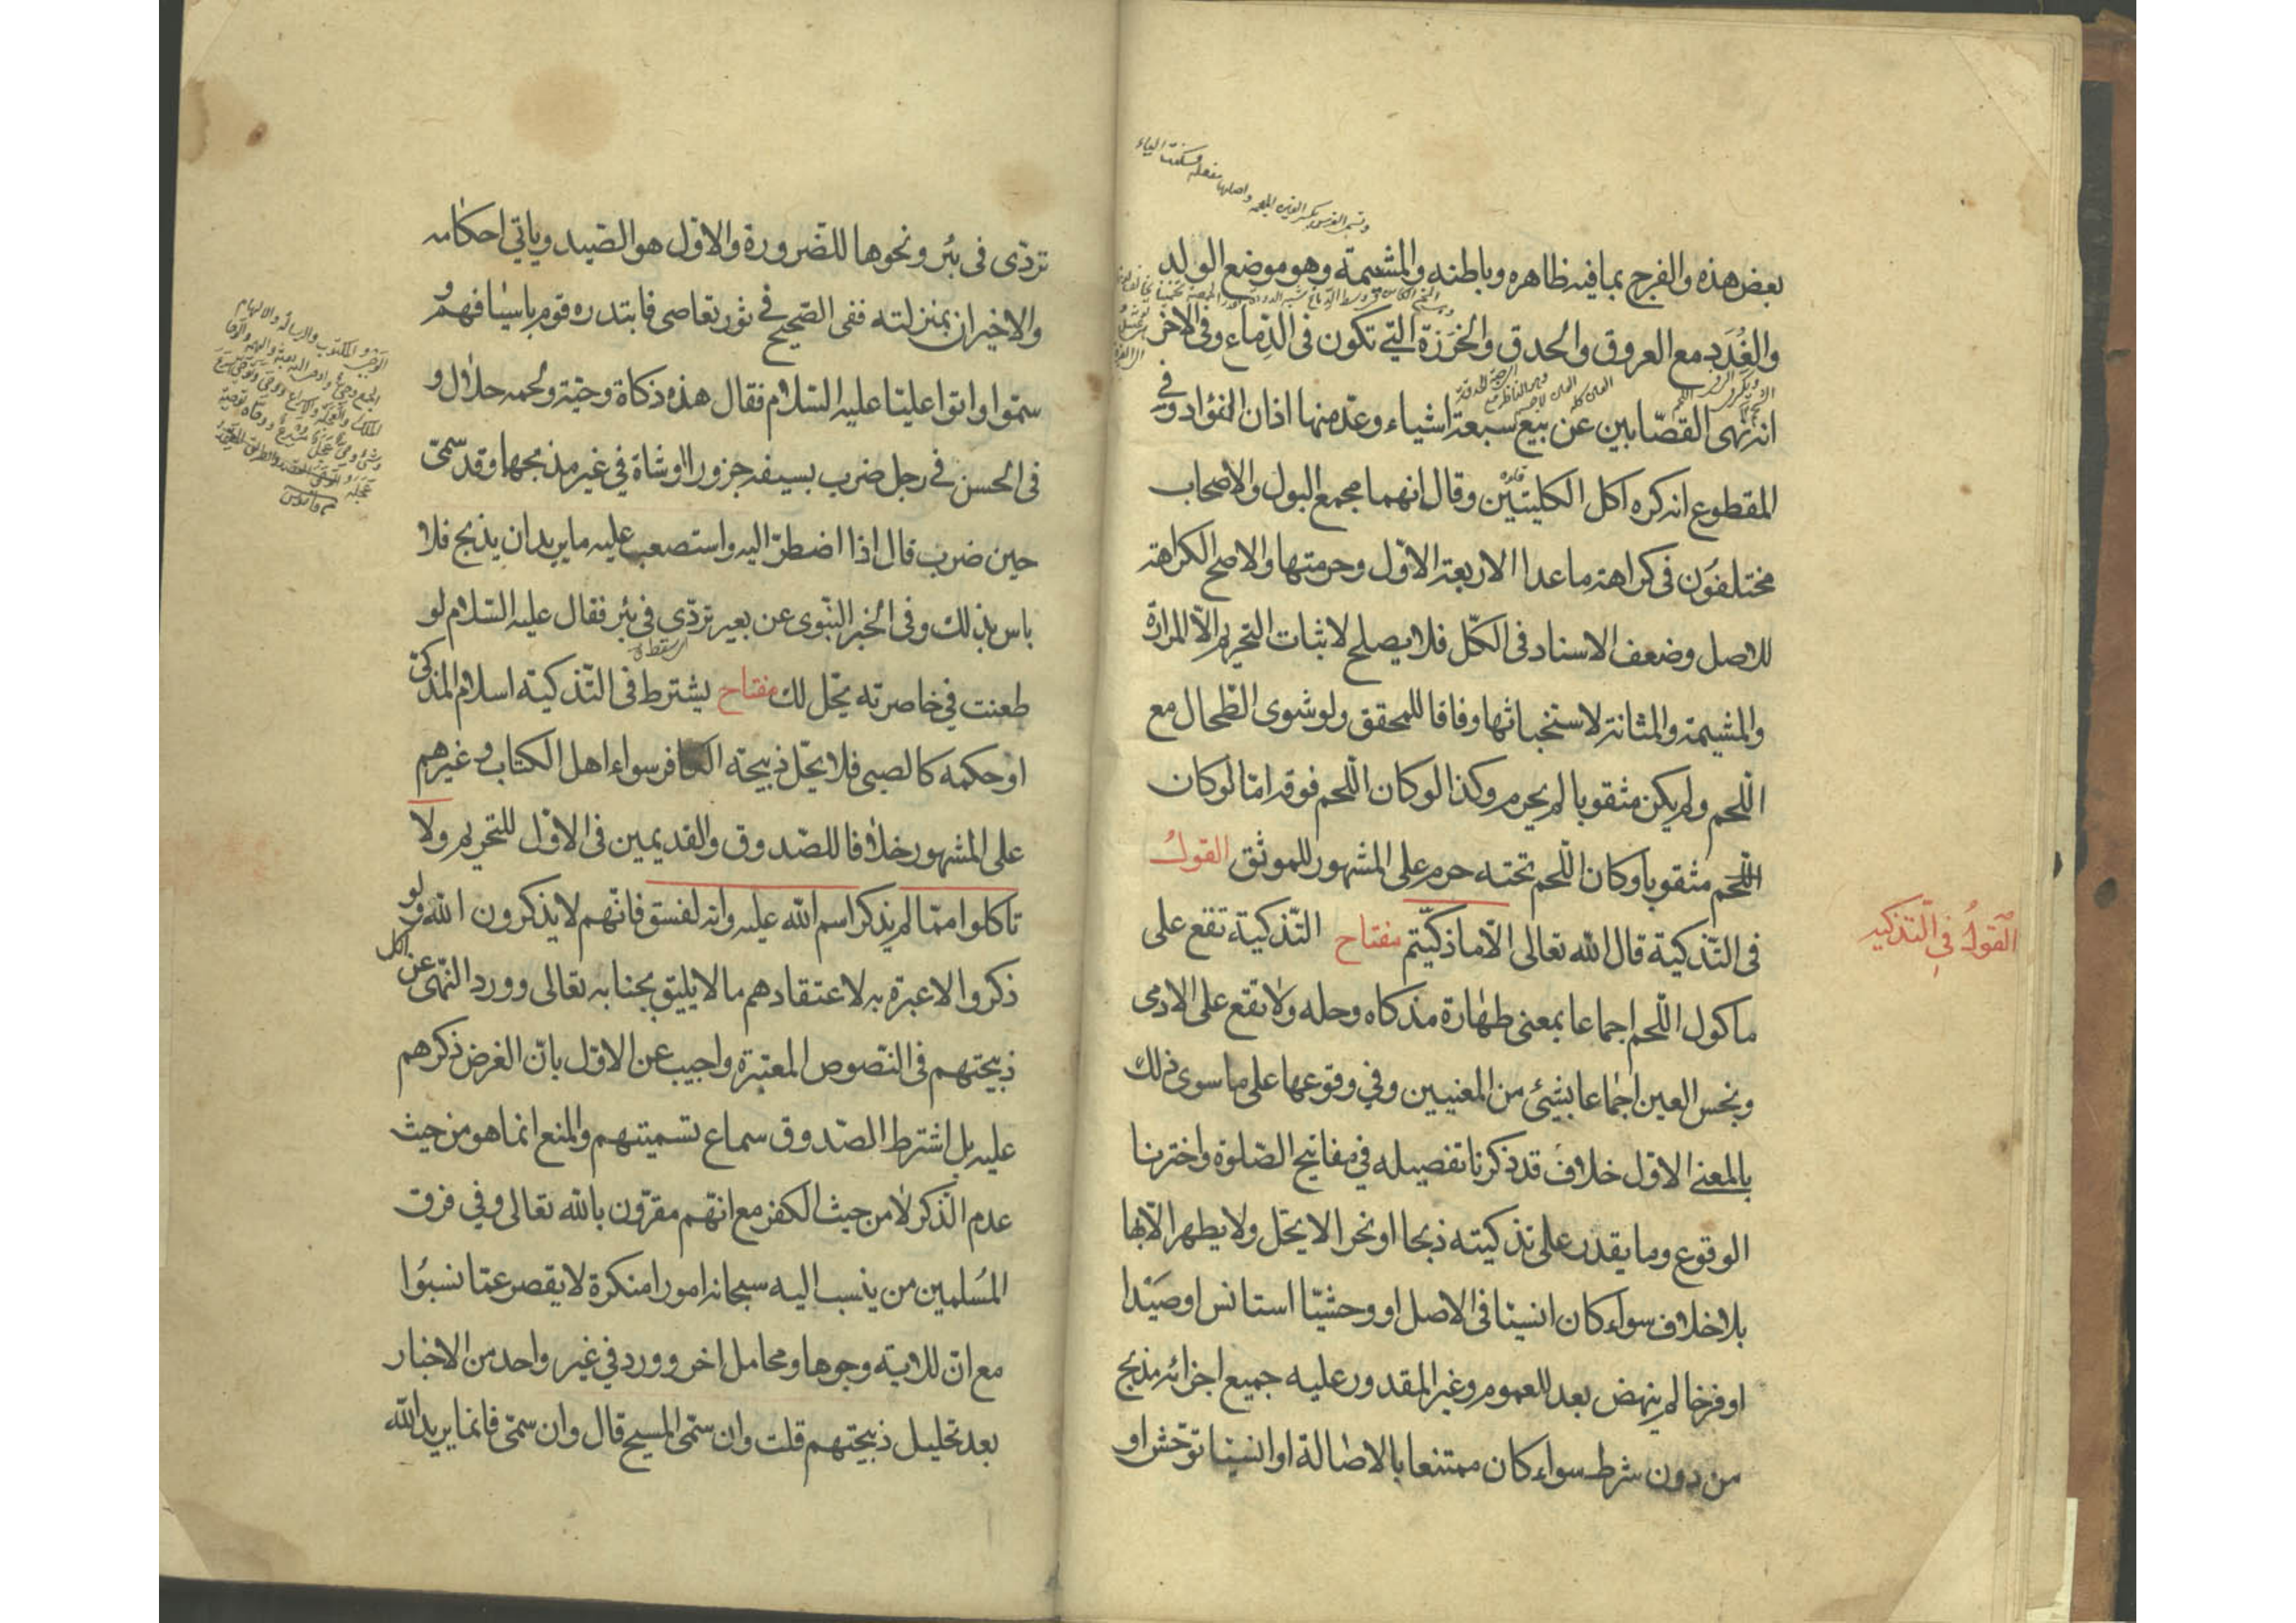 بعض هذه والفرج بما فيه ظاهره وباطنه والمشيمة وهو موضع الولد
والغُدَد مع العروق والحدق والخرزة التي تكون في الدماغ وفي الاخر
انه نهى القصّابين عن بيع سبعة اشياء وعدّ منها اذان الفؤاد وفي
المقطوع انه كره اكل الكليتين وقال انهما مجمع البول والاصحاب
مختلفون في كراهة ما عدا الاربعة الاوّل وحرمتها والاصح الكراهة
للاصل وضعف الاسناد في الكلّ فلا يصلح لاثبات التحريم الّا المرارة
والمشيمة والمثانة لاستخباثها وفاقا للمحقق ولو شوى الطّحال مع
اللّحم ولم يكن مثقوبا لم يحرم وكذا لو كان اللّحم فوقه امّا لو كان
اللّحم مثقوبا وكان اللّحم تحته حرم على المشهور للموثق القولُ
في التّذكية قال الله تعالى الّا ما ذكّيتم مفتاح التّذكية تقع على
القولُ في التّذكيه
ماكول اللّحم اجماعا بمعنى طهارة مذكاه وحله ولا تقع على الادمى
ونجس العين اجماعا بشئ من المعنيين وفي وقوعها على ما سوى ذلك
بالمعنى الاوّل خلاف قد ذكرنا تفصيله في مفاتيح الصّلوة واخترنا
الوقوع وما يقدر على تذكيته ذبحا او نحرا لا يحّل ولا يطهر الّا بها
بلا خلاف سواء كان انسيّا في الاصل او وحشيّا استانس او صَيْدا
او فرخا لم ينهض بعد للعموم وغير المقدور عليه جميع اجزائه مذبح
من دون شرط سواء كان ممتنعا بالاصالة او انسيّا توحّش او
تردّى في بئر ونحوها للضّرورة والاوّل هو الصّيد وياتي احكامه
والاخيران بمنزلته ففى الصّحيح في ثور تعاصى فابتدره قوم باسيافهم و
سمّوا واتوا عليّا عليه السّلام فقال هذه ذكاة وحيّة ولحمه حلال و
في الحسن في رجل ضرب بسيفه جزورا او شاة في غير مذبحها وقد سمّى
حين ضرب قال اذا اضطرّ اليه واستصعب عليه ما يريد ان يذبح فلا
باس بذلك وفي الخبر النّبوى عن بعير تردّى في بئر فقال عليه السّلام لو
اى سقط
طعنت في خاصرته يحّل لك مفتاح يشترط في التّذكية اسلام المذكّى
او حكمه كالصبى فلا يحّل ذبيحة الكافر سواء اهل الكتاب وغيرهم
على المشهور خلافا للصّدوق والقديمين في الاوّل للتحريم ولا
تاكلوا ممّا لم يذكر اسم الله عليه وانه لفسق فانّهم لا يذكرون الله ولو
ذكروا لا عبرة به لاعتقادهم ما لا يليق بجنابه تعالى وورد النّهى عن اكل
ذبيحتهم في النّصوص المعتبرة واجيب عن الاوّل بانّ الغرض ذكرهم
عليه بل اشترط الصّدوق سماع تسميتهم والمنع انما هو من حيث
عدم الذّكر لا من حيث الكفر مع انّهم مقرّون بالله تعالى وفي فرق
المُسلمين من ينسب اليه سبحانه امورا منكرة لا يقصر عمّا نسبُوا
مع انّ للاية وجوها ومحامل اخر وورد في غير واحد من الاخبار
بعد تحليل ذبيحتهم قلت وان سمّى المسيح قال وان سمّى فانما يريد الله